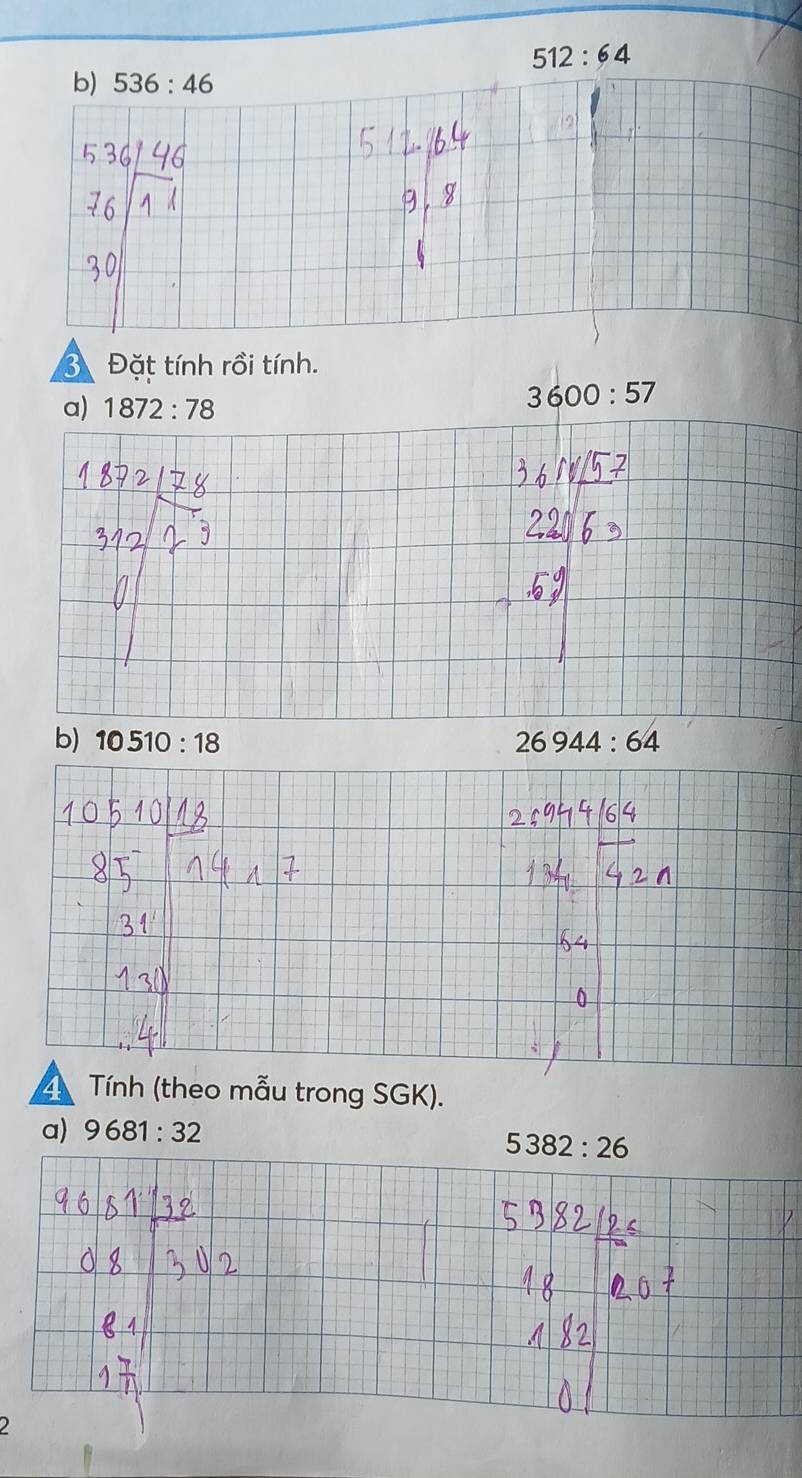 b) 536 : 46
512 : 64
536 46
76 11
30
512 64
9 8
3 Đặt tính rồi tính.
a) 1872 : 78
3600 : 57
1872 78
312 2
0
57
220 63
59
b) 10510 : 18
26944 : 64
10510 18
85 1417
31
130
4
26944 64
134 421
64
0
4 Tính (theo mẫu trong SGK).
a) 9681 : 32
5382 : 26
9681 32
08 302
81
17
5382 26
18 207
182
0
2